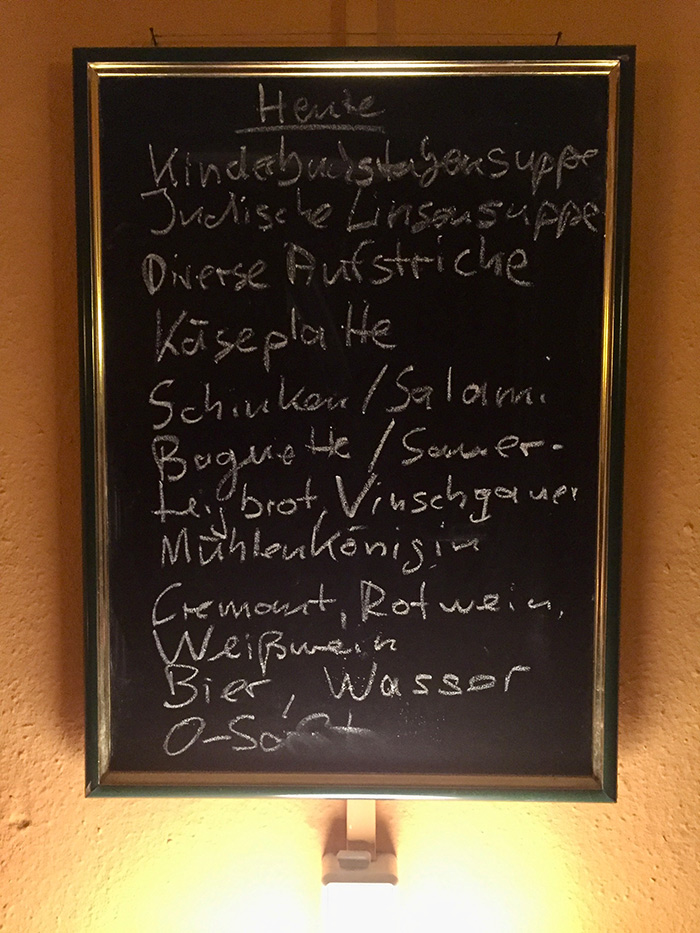 Heute
Kinderbuchstabensuppe
Indische Linsensuppe
Diverse Aufstriche
Käseplatte
Schinken/Salami
Baguette/Sauer-
teigbrot, Vinschgauer
Mühlenkönigin
Cremont, Rotwein,
Weißwein
Bier, Wasser
O-Saft